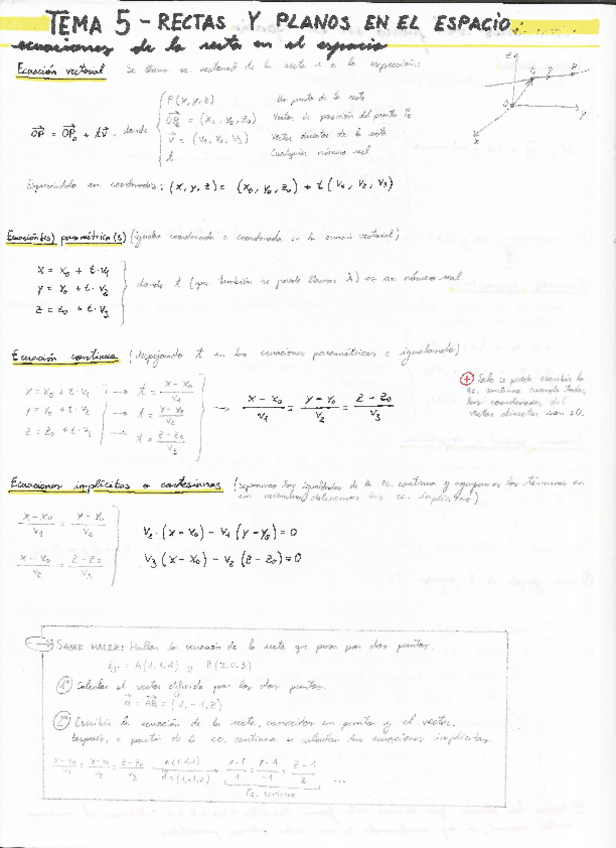 TEMA 5 - RECTAS Y PLANOS EN EL ESPACIO:
ecuaciones de la recta en el espacio
Ecuación vectorial Se llama ec vectorial de la recta r a la expresión:
OP = OP₀ + tv, donde
P(x,y,z) Un punto de la recta
OP₀ = (x₀, y₀, z₀) Vector de posición del punto P₀
v = (v₁, v₂, v₃) Vector director de la recta
t Cualquier número real
z
y
x
Expresándolo en coordenadas: (x, y, z) = (x₀, y₀, z₀) + t(v₁, v₂, v₃)
Ecuación(es) paramétrica(s) (igualar coordenada a coordenada en la ecuación vectorial)
x = x₀ + t·v₁
y = y₀ + t·v₂
z = z₀ + t·v₃
donde t (que también se puede llamar λ) es un número real
Ecuación continua (despejando t en las ecuaciones paramétricas e igualando)
x = x₀ + t·v₁ → t = (x-x₀)/v₁
y = y₀ + t·v₂ → t = (y-y₀)/v₂
z = z₀ + t·v₃ → t = (z-z₀)/v₃
→ (x-x₀)/v₁ = (y-y₀)/v₂ = (z-z₀)/v₃
Solo se puede escribir la
ec. continua cuando todas
las coordenadas del
vector director son ≠0.
Ecuaciones implícitas o cartesianas (separamos las igualdades de la ec. continua y agrupamos los términos en
un miembro, obtenemos las ec. implícitas)
(x-x₀)/v₁ = (y-y₀)/v₂ V₂·(x-x₀) - v₁(y-y₀) = 0
(x-x₀)/v₂ = (z-z₀)/v₃ V₃(x-x₀) - v₂(z-z₀) = 0
→ SABER HACER: Hallar la ecuación de la recta que pasa por dos puntos.
Ej: A(1,1,1) y B(2,0,3)
1º Calcular el vector definido por los dos puntos.
u = AB = (1,-1,2)
2º Escribir la ecuación de la recta, conocidos un punto y el vector.
Después, a partir de la ec. continua se calculan las ecuaciones implícitas
(x-x₀)/v₁ = (y-y₀)/v₂ = (z-z₀)/v₃ A(1,1,1) (1,-1,2) → (x-1)/1 = (y-1)/-1 = (z-1)/2 ...
Ec. continua